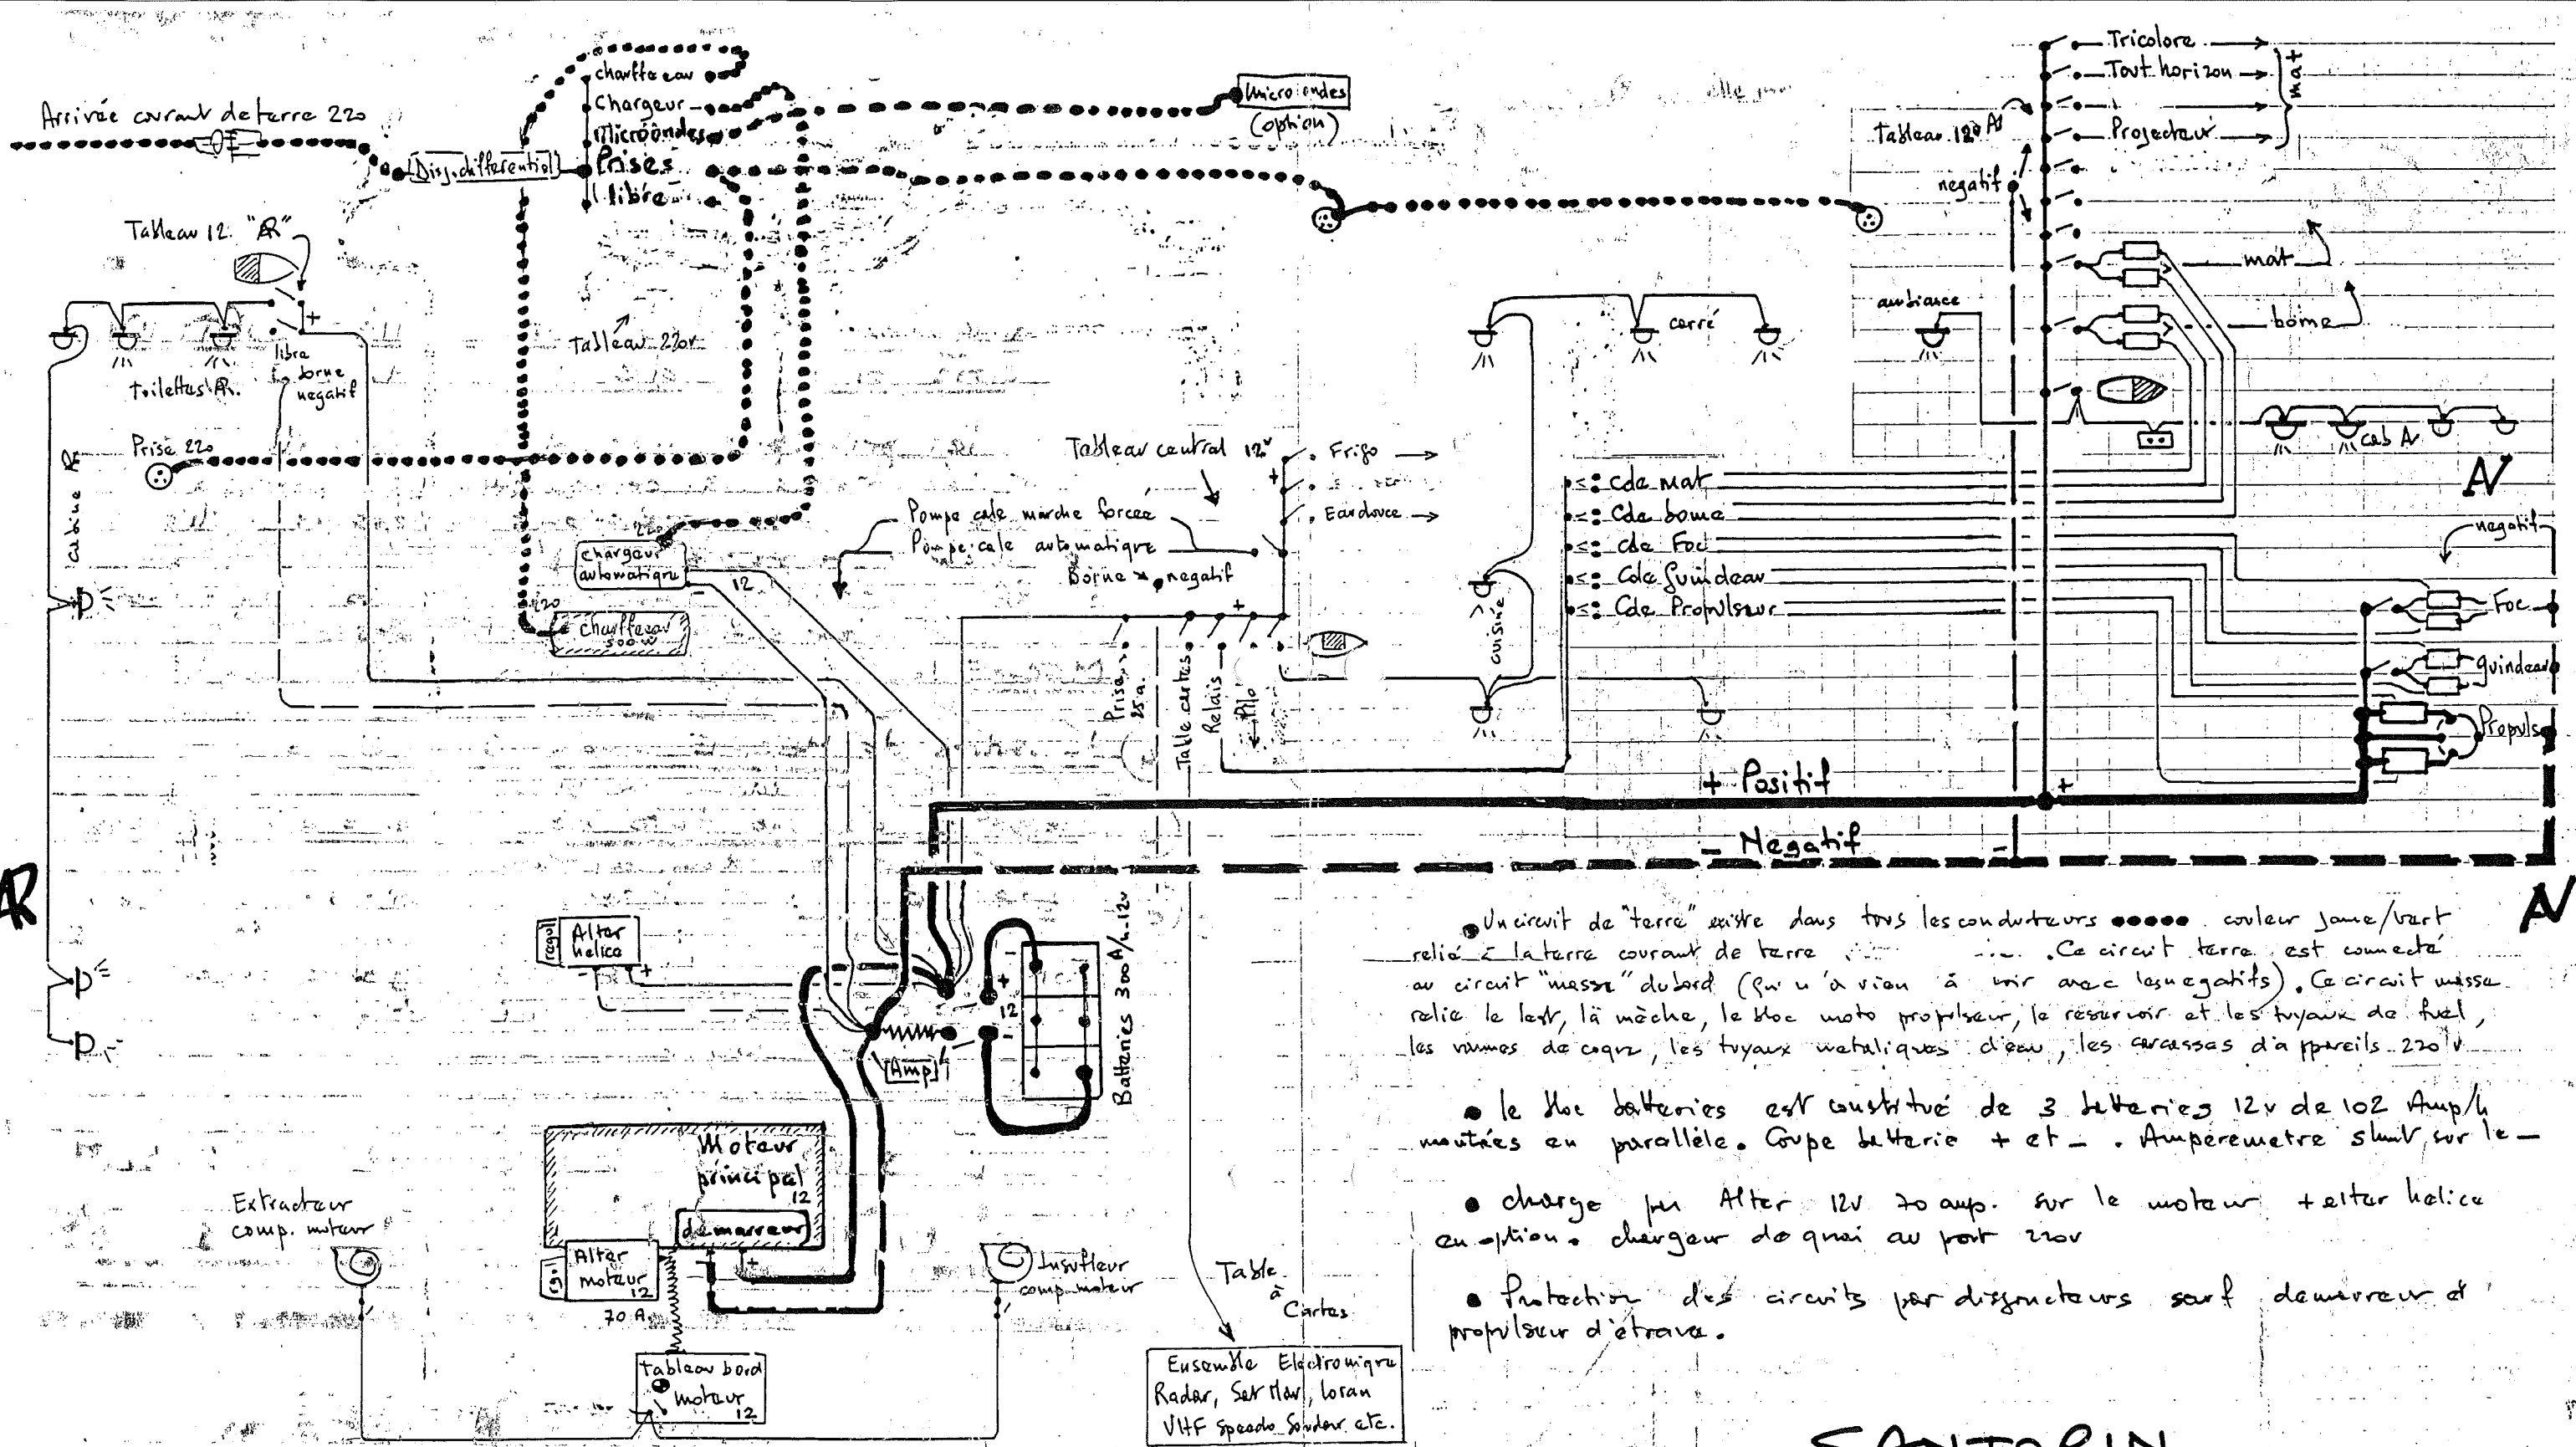 Arrivée courant de terre 220
Disj. differentiel
chauffe eau
Chargeur
Microondes
Prises
libre
Micro ondes
(option)
Tableau 220v
Tableau 12 "AR"
+
libre
borne
negatif
Toilettes AR.
Prise 220
cabine AR
220
chargeur
automatique
12
220
chauffeeau
500 W
Tableau central 12v
+
Frigo
Eau douce
Pompe cale marche forcée
Pompe cale automatique
Borne negatif
+
Prise
25 a.
Table cartes
Relais
Pilo
carré
ambiance
cuisine
Tricolore
Tout horizon
Projecteur
mat
Tableau 12v AV
negatif
mat
bome
cab AV
AV
Cde mat
Cde bome
Cde Foc
Cde Guindeau
Cde Propulseur
negatif
Foc
guindeau
Propuls
+ Positif
+
- Negatif
-
AR
AV
regul
Alter
helice
- +
Amp
+
12
-
Batteries 300 A/h 12v
Moteur
principal
12
demarreur
- +
Alter
moteur
12
70 A
Extracteur
comp. moteur
Insufleur
comp moteur
Tableau bord
moteur
12
Table
à
Cartes
Ensemble Electronique
Radar, Sat Nav, Loran
VHF Speedo Sondeur etc.
• Un circuit de "terre" existe dans tous les conducteurs ••••• couleur jaune/vert
relié à la terre courant de terre . Ce circuit terre est connecté
au circuit "masse" du bord (qui n'a rien à voir avec les negatifs). Ce circuit masse
relie le lest, la mèche, le bloc moto propulseur, le reservoir et les tuyaux de fuel,
les vannes de coque, les tuyaux metaliques d'eau, les carcasses d'appareils 220 v
• le bloc batteries est constitué de 3 batteries 12v de 102 Amp/h
montées en parallèle. Coupe batterie + et - . Ampèremetre shunt sur le -
• charge par Alter 12v 70 amp. sur le moteur + alter helice
en option. chargeur de quai au port 220v
• Protection des circuits par disjoncteurs sauf demarreur et
propulseur d'étrave.
SANTORIN